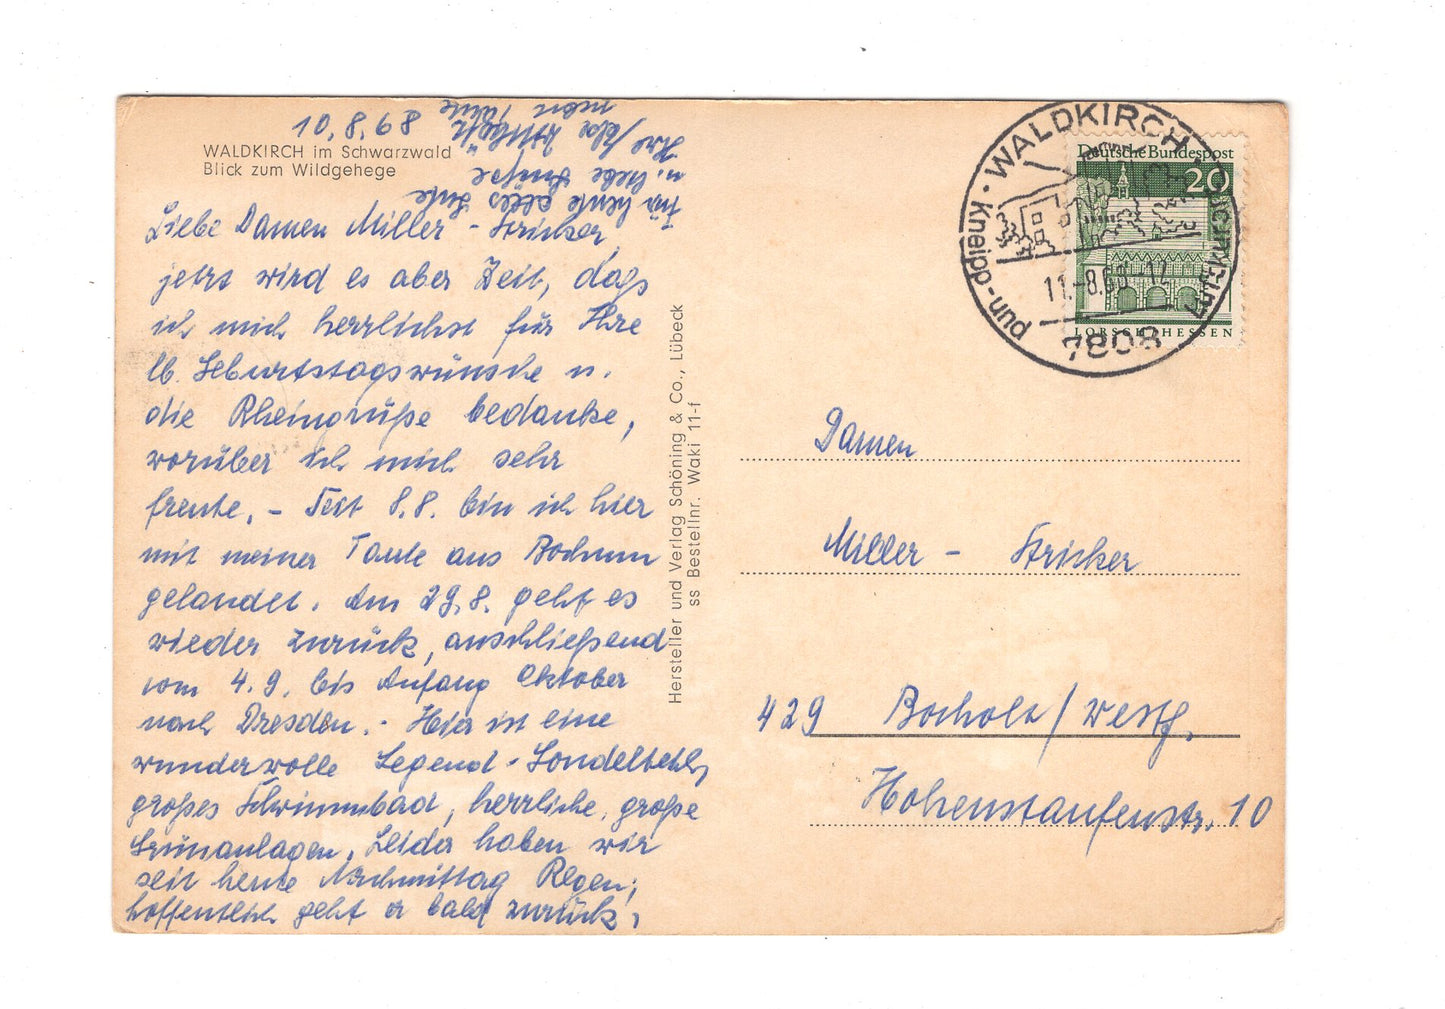 10.8.68
WALDKIRCH im Schwarzwald
Blick zum Wildgehege
Liebe Damen Miller - Stricker,
jetzt wird es aber Zeit, daß
ich mich herrlichst für Ihre
lb. Geburtstagswünsche u.
die Rheingrüße bedanke,
worüber ich mich sehr
freute. - Seit 8.8. bin ich hier
mit meiner Tante aus Bochum
gelandet. Am 29.8. geht es
wieder zurück, anschließend
vom 4.9. bis Anfang Oktober
nach Dresden. - Hier ist eine
wundervolle Gegend -
großes Schwimmbad, herrliche, große
Grünanlagen. Leider haben wir
seit heute Nachmittag Regen;
hoffentlich geht er bald zurück.
Für heute alles Gute
u. liebe Grüße
Ihre
Hersteller und Verlag Schöning & Co., Lübeck
ss Bestellnr. Waki 11-f
WALDKIRCH
Kneipp- und
11.-8.68-12
7808
Deutsche Bundespost
20
LORSCH/HESSEN
Damen
Miller - Stricker
429 Bocholt/Westf.
Hohenstaufenstr. 10